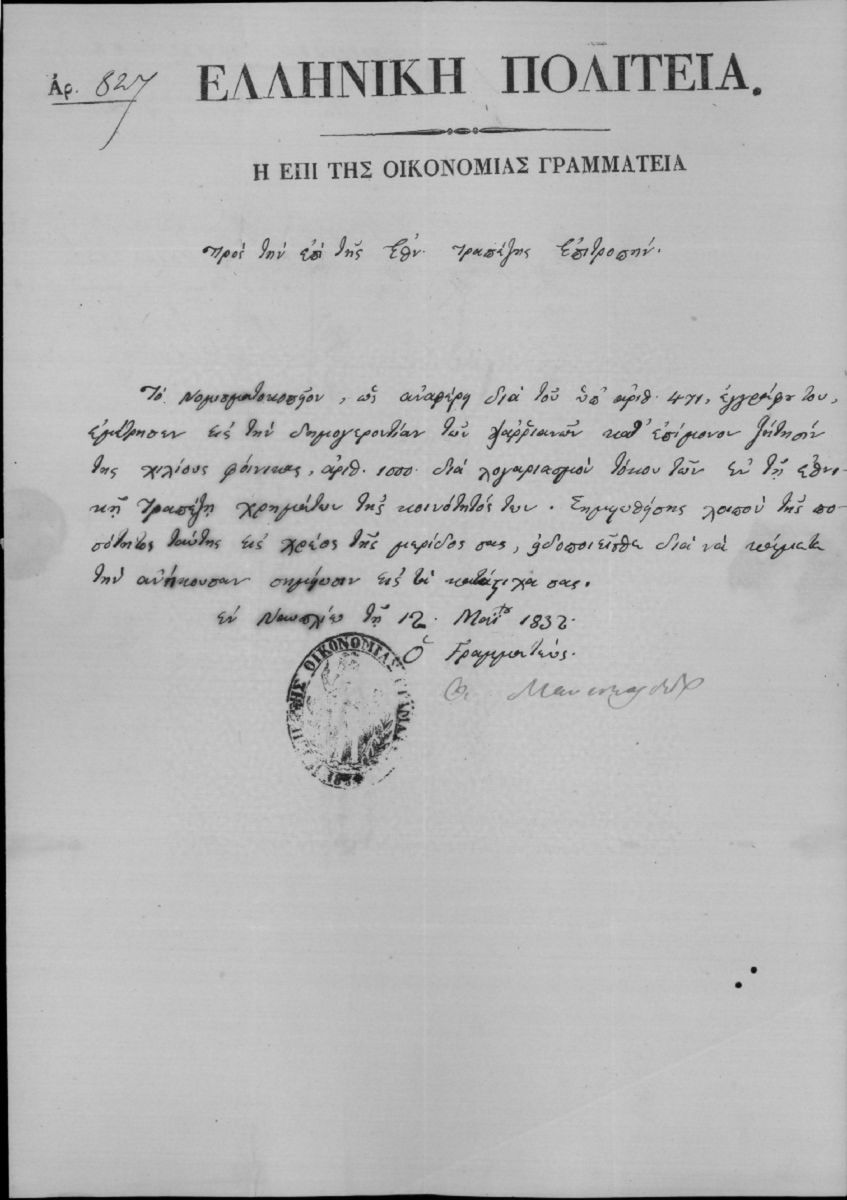 Ἀρ. 827
ΕΛΛΗΝΙΚΗ ΠΟΛΙΤΕΙΑ.
Η ΕΠΙ ΤΗΣ ΟΙΚΟΝΟΜΙΑΣ ΓΡΑΜΜΑΤΕΙΑ
Πρὸς τὴν ἐπὶ τῆς Ἐθν. Τραπέζης Ἐπιτροπήν.
Τὸ Νομισματοκοπεῖον, ὡς ἀναφέρη διὰ τοῦ ὑπ' ἀριθ. 471, ἐγγράφου του,
ἐμέτρησεν εἰς τὴν δημογεροντίαν τῶν καθ' ἐπίμονον ζήτησίν
της χιλίους φοίνικας, ἀριθ. 1000. διὰ λογαριασμὸν τόκου τῶν ἐν τῇ ἐθνι-
κῇ Τραπέζῃ χρημάτων τῆς κοινότητός των. Σημειωθείσης λοιπὸν τῆς πο-
σότητος ταύτης εἰς χρέος τῆς μερίδος σας, εἰδοποιεῖσθε διὰ νὰ κάμετε
τὴν ἀνήκουσαν σημείωσιν εἰς τὰ κατάστιχά σας.
Ἐν Ναυπλίῳ τῇ 12. Μαΐου 1832.
Ὁ Γραμματεὺς.
ΤΗΣ ΟΙΚΟΝΟΜΙΑΣ